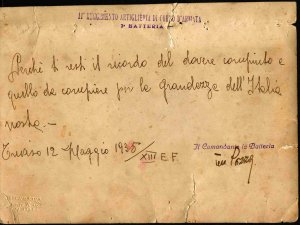 11° REGGIMENTO ARTIGLIERIA DI CORPO D'ARMATA
1ª BATTERIA
Perché ti resti il ricordo del dovere compiuto e
quello da compiere per la grandezza dell'Italia
nostra. —
Treviso 12 Maggio 1935/XIII E.F.
Il Comandante la Batteria